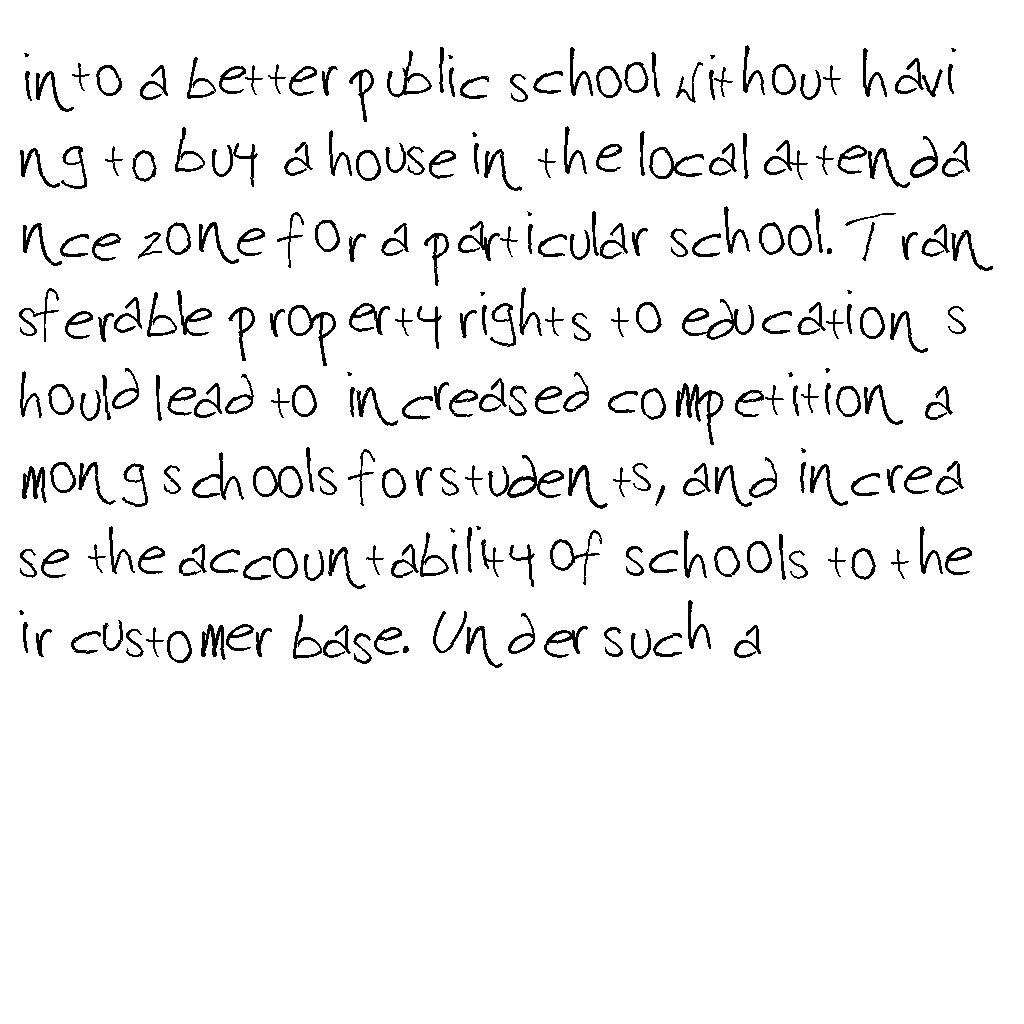 into a better public school without havi
ng to buy a house in the local attenda
nce zone for a particular school. Tran
sferable property rights to education s
hould lead to increased competition a
mong schools for students, and increa
se the accountability of schools to the
ir customer base. Under such a